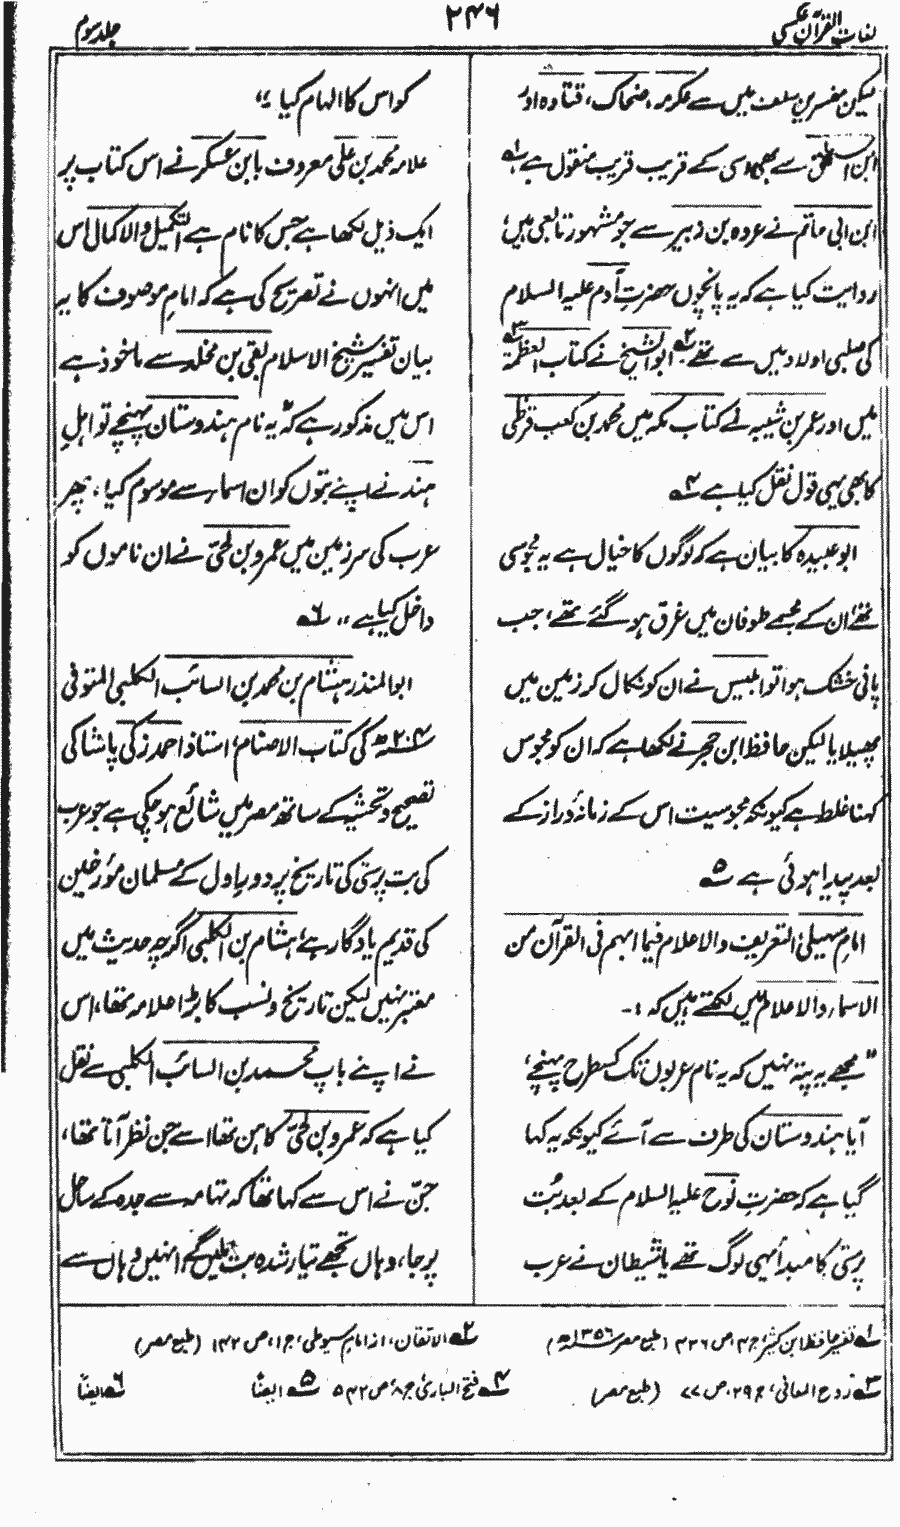 لغات القرآن عکسی
۲۴۶
جلد سوم
لیکن مفسرین سلف میں سے عکرمہ، ضحاک، قتادہ اور
ابن اسحٰق سے بھی اسی کے قریب قریب منقول ہے ۱ھ
ابن ابی حاتم نے عروہ بن زبیر سے جو مشہور تابعی ہیں،
روایت کیا ہے کہ یہ پانچوں حضرت آدم علیہ السلام
کی صلبی اولاد میں سے تھے ۲ھ ابوالشیخ نے کتاب العظمۃ ۳ھ
میں اور عمر بن شیبہ نے کتاب مکہ میں محمد بن کعب قرظی
کا بھی یہی قول نقل کیا ہے ۴ھ
ابو عبیدہ کا بیان ہے کہ لوگوں کا خیال ہے یہ مجوسی
تھے، ان کے مجسمے طوفان میں غرق ہو گئے تھے، جب
پانی خشک ہوا تو ابلیس نے ان کو نکال کر زمین میں
پھیلایا لیکن حافظ ابن حجر نے لکھا ہے کہ ان کو مجوس
کہنا غلط ہے کیونکہ مجوسیت اس کے زمانۂ دراز کے
بعد پیدا ہوئی ہے ۵ھ
امام سہیلی، التعریف والاعلام فیما ابہم فی القرآن من
الاسماء والاعلام میں لکھتے ہیں کہ :-
"مجھے یہ پتہ نہیں کہ یہ نام عربوں تک کس طرح پہنچے،
آیا ہندوستان کی طرف سے آئے کیونکہ یہ کہا
گیا ہے کہ حضرت نوح علیہ السلام کے بعد بُت
پرستی کا مبدأ یہی لوگ تھے یا شیطان نے عرب
کو اس کا الہام کیا ،،
علامہ محمد بن علی معروف بابن عسکر نے اس کتاب پر
ایک ذیل لکھا ہے جس کا نام ہے التکمیل والاکمال اس
میں انہوں نے تصریح کی ہے کہ امام موصوف کا یہ
بیان تفسیر شیخ الاسلام بقی بن مخلد سے ماخوذ ہے
اس میں مذکور ہے کہ "یہ نام ہندوستان پہنچے تو اہلِ
ہند نے اپنے بتوں کو ان اسماء سے موسوم کیا، پھر
عرب کی سرزمین میں عمرو بن لحیّ نے ان ناموں کو
داخل کیا ہے ،، ۶ھ
ابوالمنذر ہشام بن محمد بن السائب الکلبی المتوفی
۲۰۴ھ کی کتاب الاصنام، استاذ احمد زکی پاشا کی
تصحیح و تحشیہ کے ساتھ مصر میں شائع ہو چکی ہے جو عرب
کی بت پرستی کی تاریخ پر دورِ اول کے مسلمان مؤرخین
کی قدیم یادگار ہے، ہشام بن الکلبی اگرچہ حدیث میں
معتبر نہیں لیکن تاریخ و نسب کا بڑا علامہ تھا، اس
نے اپنے باپ محمد بن السائب الکلبی سے نقل
کیا ہے کہ عمرو بن لحیّ کاہن تھا اسے جن نظر آتا تھا،
جنّ نے اس سے کہا تھا کہ تہامہ سے جدہ کے ساحل
پر جا، وہاں تجھے تیار شدہ بت ملیں گے، انہیں وہاں سے
۱ھ تفسیر حافظ ابن کثیر، ج ۴، ص ۴۲۶ (طبع مصر ۱۳۵۶ھ)
۲ھ الاتقان، از امام سیوطی، ج ۱، ص ۱۴۲ (طبع مصر)
۳ھ روح المعانی، ج ۲۹، ص ۷۷ (طبع مصر)
۴ھ فتح الباری، ج ۸، ص ۵۴۲
۵ھ ایضاً
۶ھ ایضاً